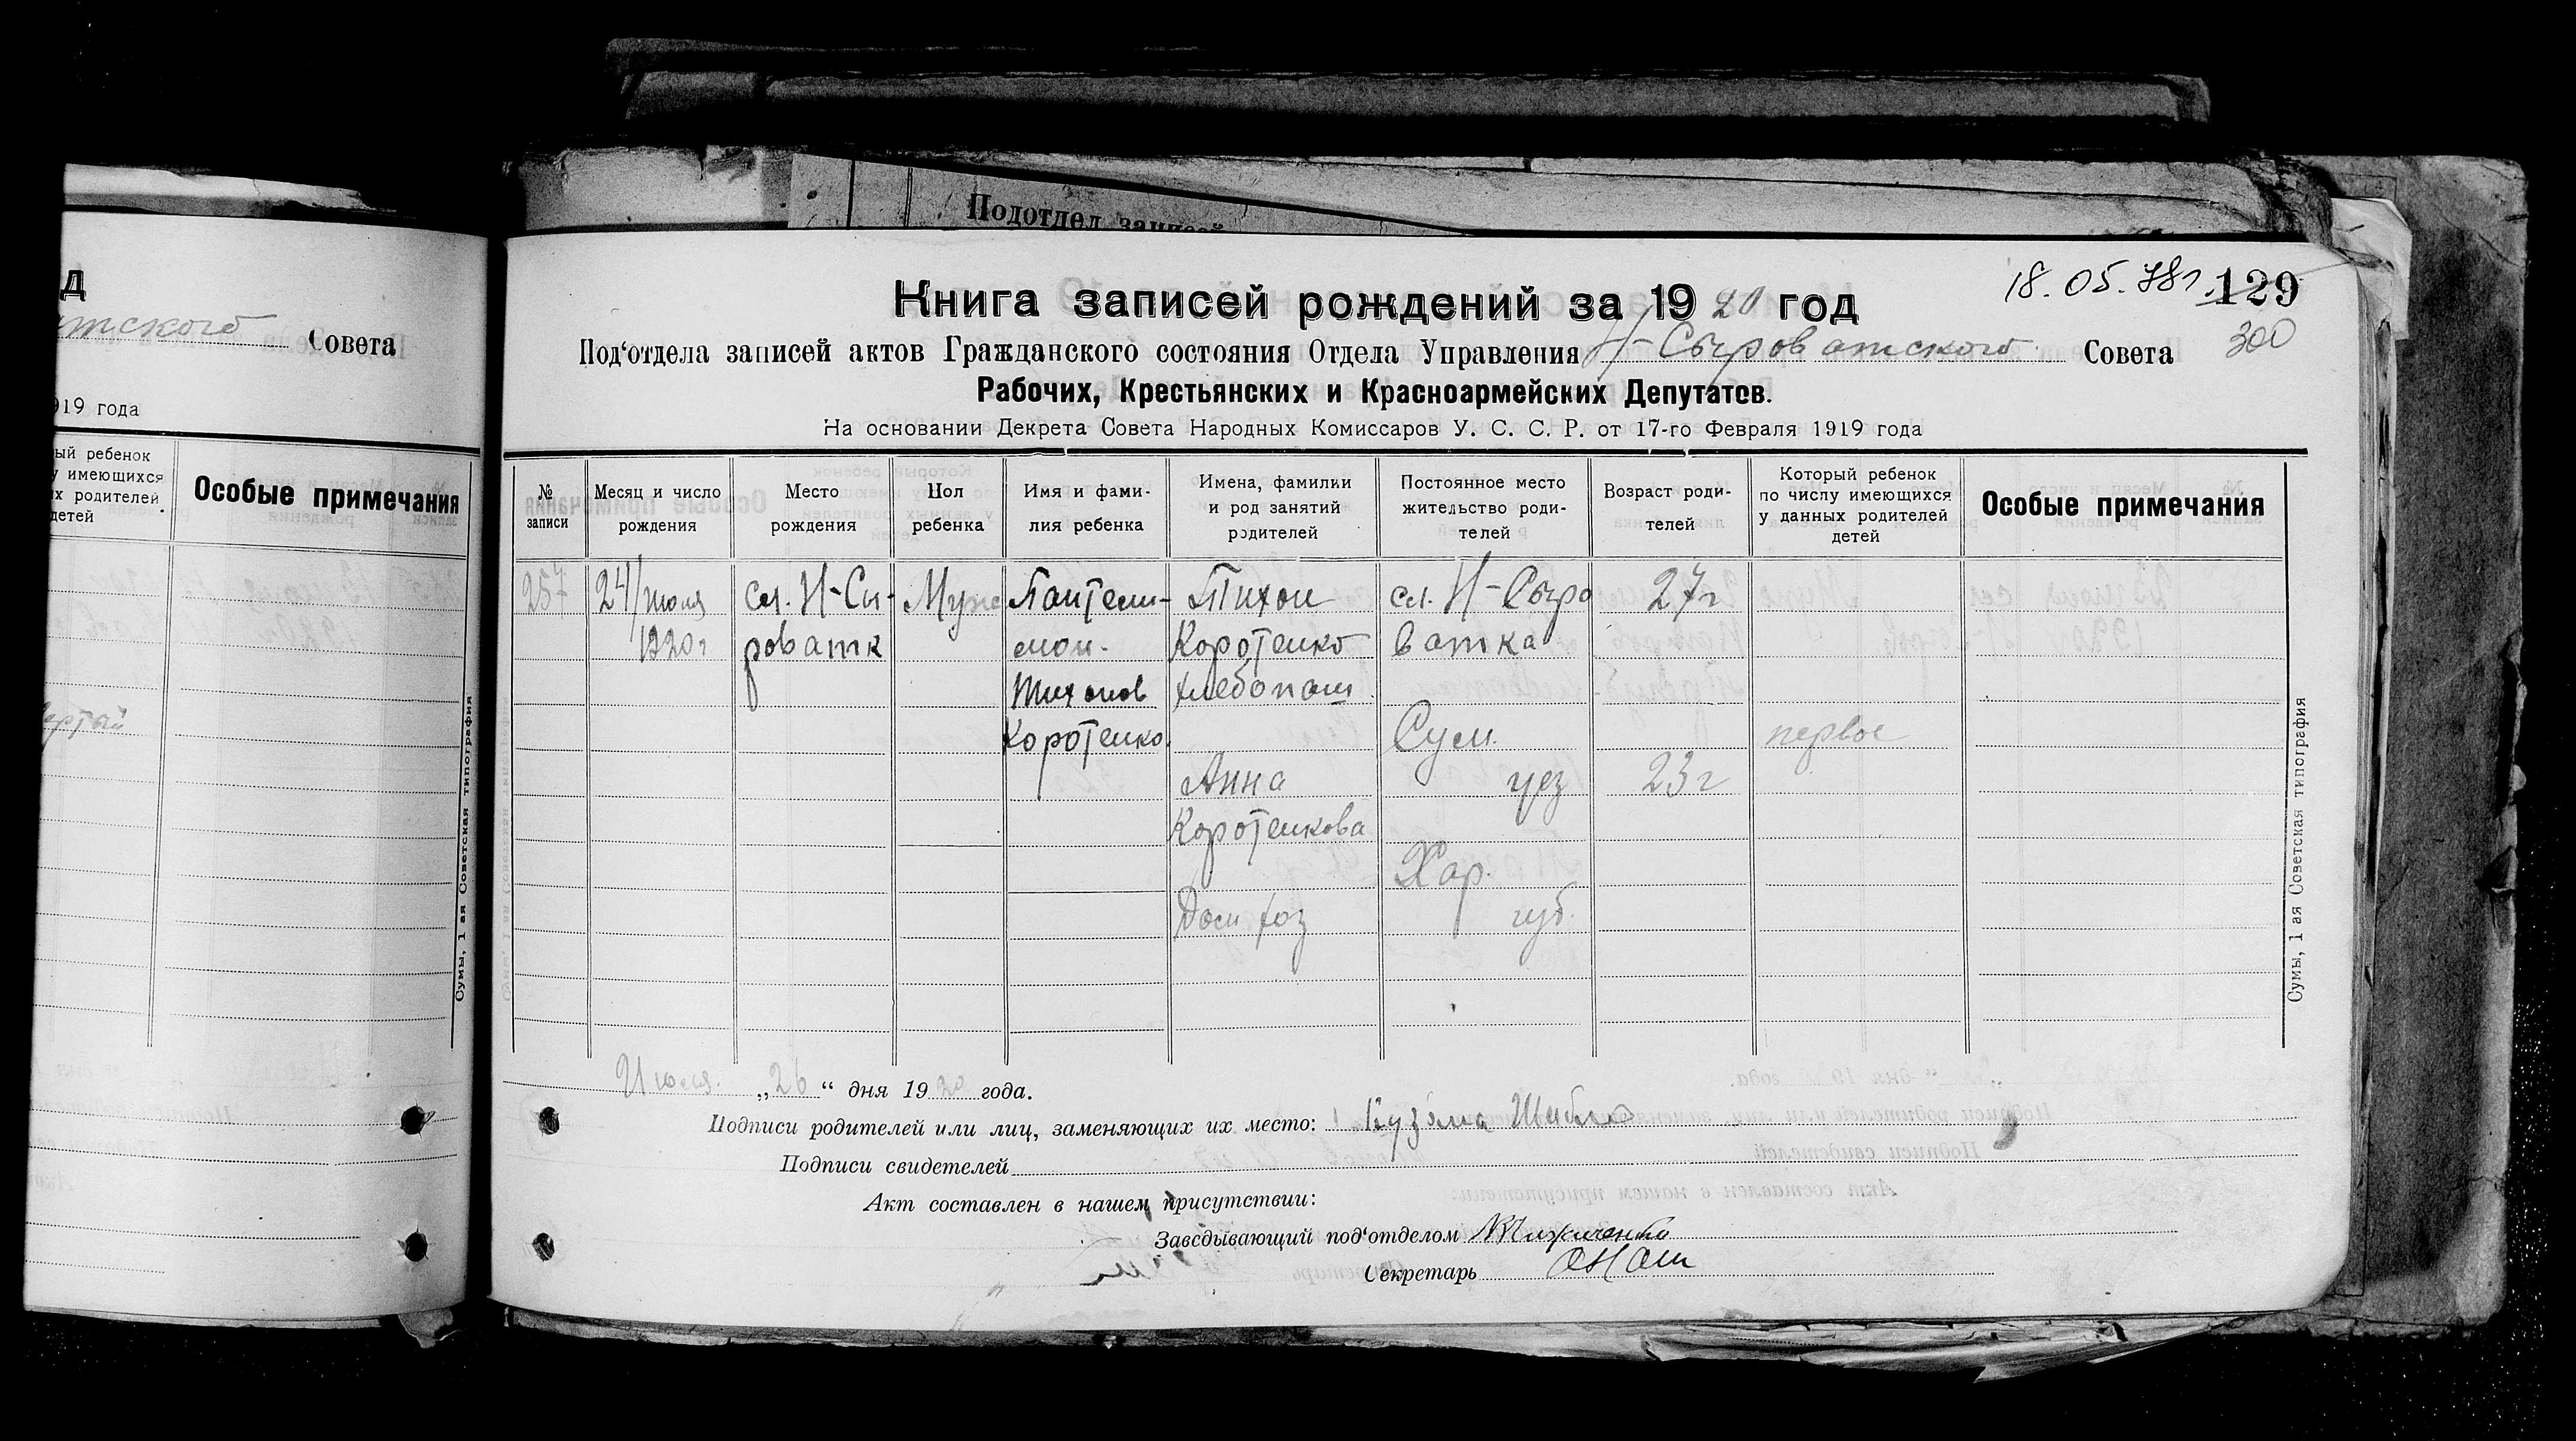 Подотдел записей
д
атского Совета
919 года
ый ребенок
у имеющихся
их родителей
детей
Особые примечания
Сумы, 1 ая Советская типография
18.05.78г. 129
300
Книга записей рождений за 1920 год
Под‘отдела записей актов Гражданского состояния Отдела Управления Н-Сыроватского Совета
Рабочих, Крестьянских и Красноармейских Депутатов.
На основании Декрета Совета Народных Комиссаров У. С. С. Р. от 17-го Февраля 1919 года
№ записи
Месяц и число рождения
Место рождения
Пол ребенка
Имя и фамилия ребенка
Имена, фамилии и род занятий родителей
Постоянное место жительство родителей
Возраст родителей
Который ребенок по числу имеющихся у данных родителей детей
Особые примечания
257 24/июля сл. Н-Сы- Муж Пантели- Тихон сл. Н-Сыро 27г
1920г роватк мон. Коротенко ватка
Тихонов хлебопаш.
Коротенко. Сум. первое
Анна уез 23г
Коротенкова
Хар.
Дом хоз губ.
Июля „26“ дня 1920 года.
Подписи родителей или лиц, заменяющих их место: Кузьма
Подписи свидетелей
Акт составлен в нашем присутствии:
Заведывающий под‘отделом
Секретарь
Сумы, 1 ая Советская типография